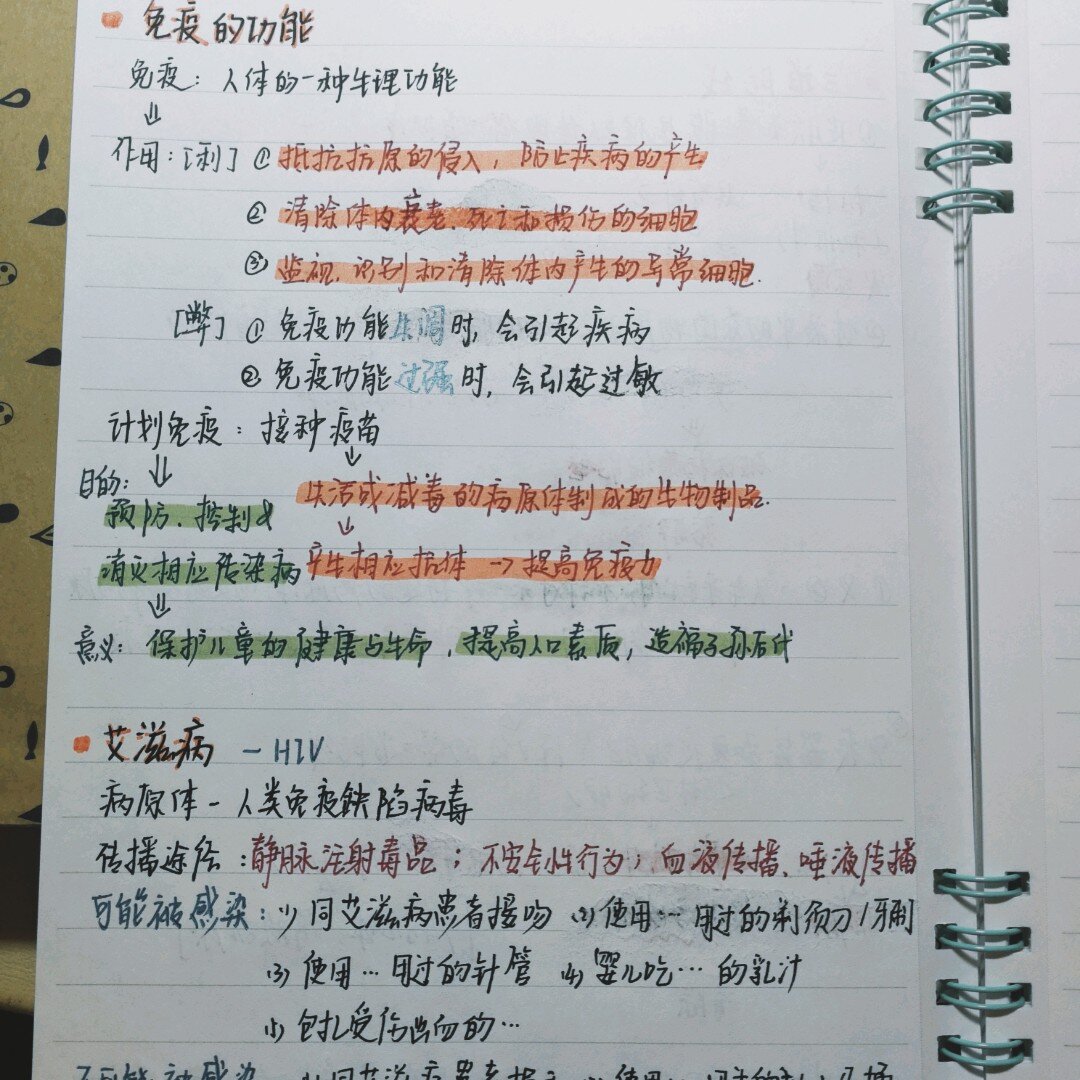 免疫的功能
免疫：人体的一种生理功能
⇓
作用：[利] ① 抵抗抗原的侵入，防止疾病的产生
② 清除体内衰老、死亡和损伤的细胞
③ 监视、识别和清除体内产生的异常细胞.
[弊] ① 免疫功能失调时，会引起疾病
② 免疫功能过强时，会引起过敏
计划免疫：接种疫苗
⇓ ↓
目的：
失活或减毒的病原体制成的生物制品.
预防、控制及
↓
消灭相应传染病 产生相应抗体 → 提高免疫力
⇓
意义：保护儿童的健康与生命，提高人口素质，造福子孙后代
艾滋病 — HIV
病原体 — 人类免疫缺陷病毒
传播途径：静脉注射毒品；不安全性行为；血液传播、唾液传播
可能被感染：(1) 同艾滋病患者接吻 (2) 使用…用过的剃须刀/牙刷
(3) 使用…用过的针管 (4) 婴儿吃…的乳汁
(5) 包扎受伤出血的…
不可能被感染 (1) 同艾滋病患者 (2) 使用…用过的